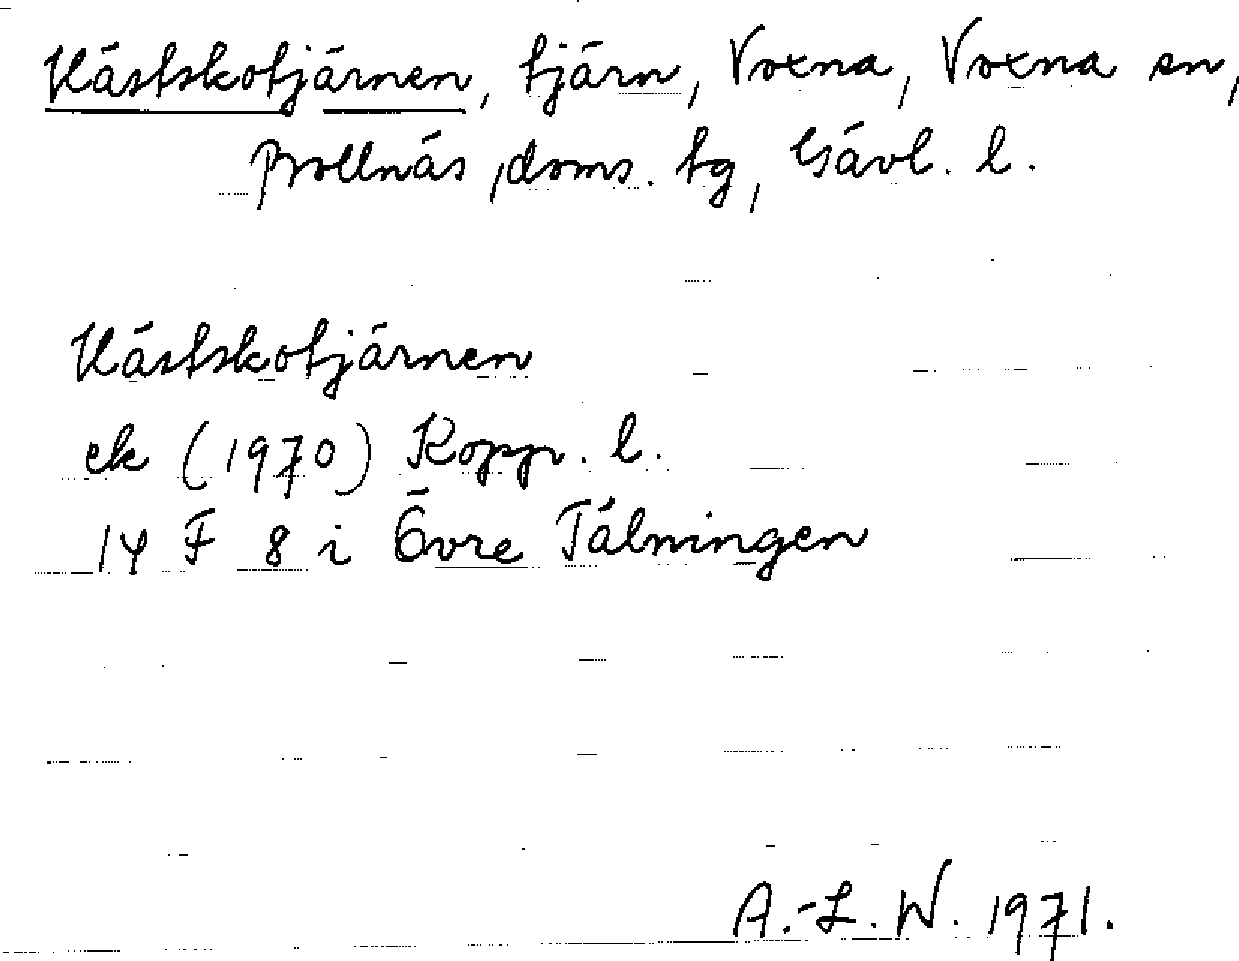 Hästskotjärnen, tjärn, Voxna, Voxna sn,
Bollnäs, doms. tg, Gävl. l.
Hästskotjärnen
ek (1970) Kopp. l.
14 F 8 i Övre Tälningen
A.-L. W. 1971.